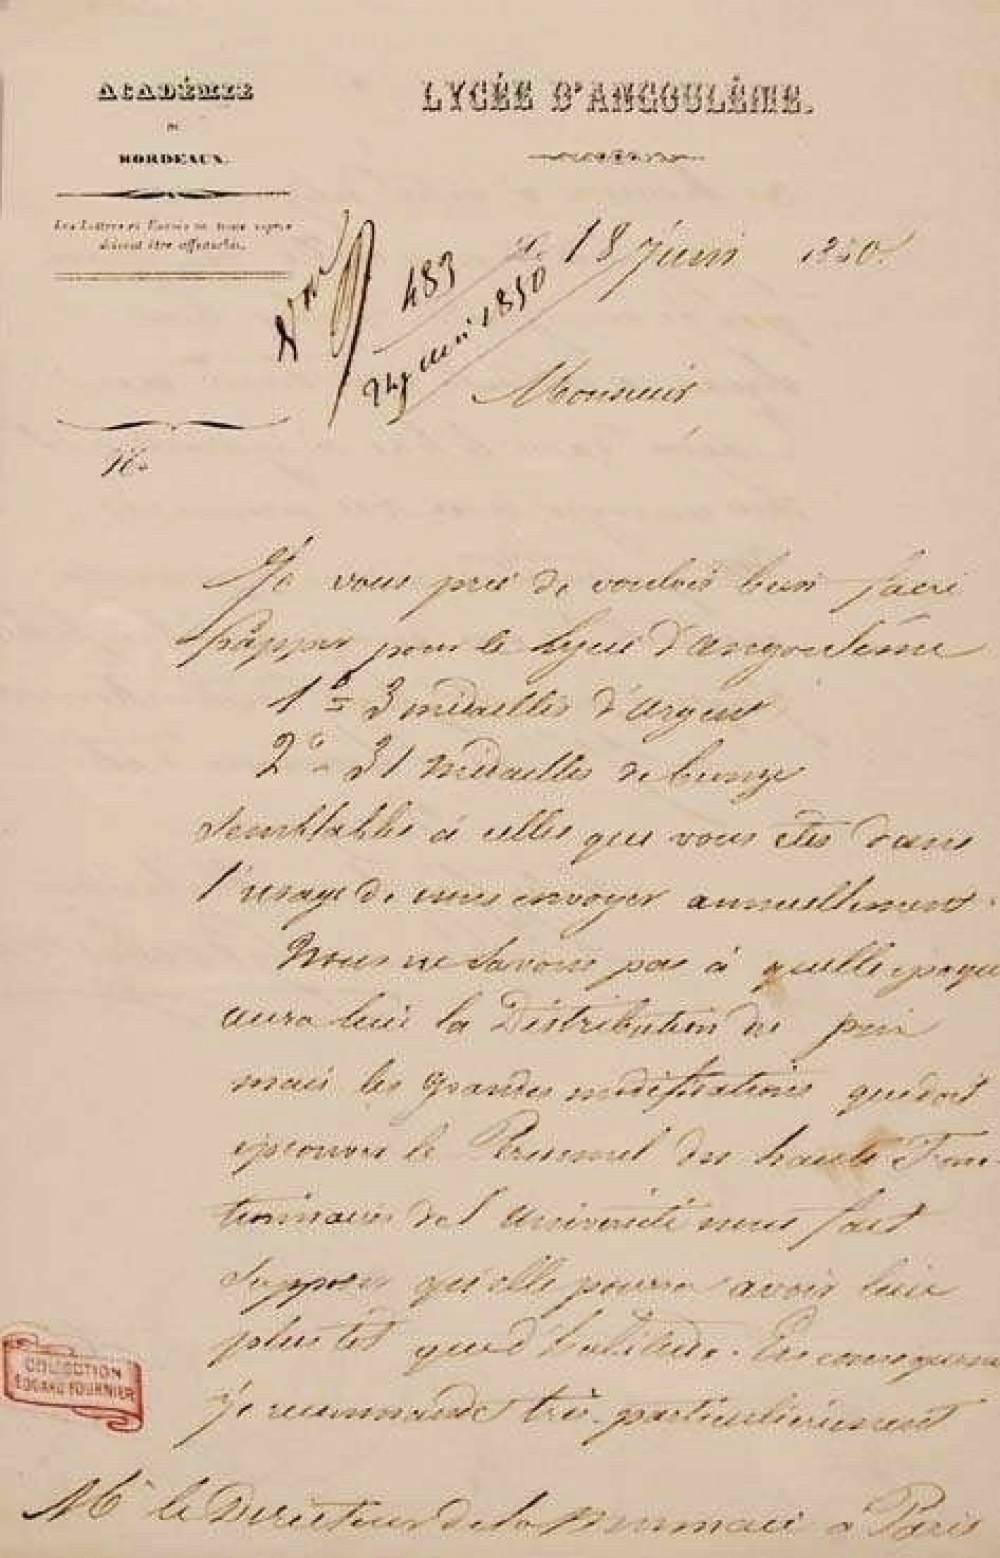 ACADÉMIE
DE
BORDEAUX.
LYCÉE D'ANGOULÊME.
Les Lettres et Envois de toute espèce
doivent être affranchis.
le 18 juin 1850.
483
24 juin 1850
Monsieur
No
Je vous prie de vouloir bien faire
frapper pour le Lycée d'Angoulême
1º 3 médailles d'argent
2º 31 médailles de bronze
Semblables à celles que vous êtes dans
l'usage de nous envoyer annuellement.
Nous ne Savons pas à quelle époque
aura lieu la Distribution des prix
mais les grandes modifications que doit
éprouver le Personnel des hauts Fonc-
tionnaires de l'Université nous fait
Supposer qu'elle pourra avoir lieu
plus tôt que d'habitude. En conséquence
je recommande très particulièrement
COLLECTION
EDGARD FOURNIER
Mr le Directeur de la Monnaie à Paris